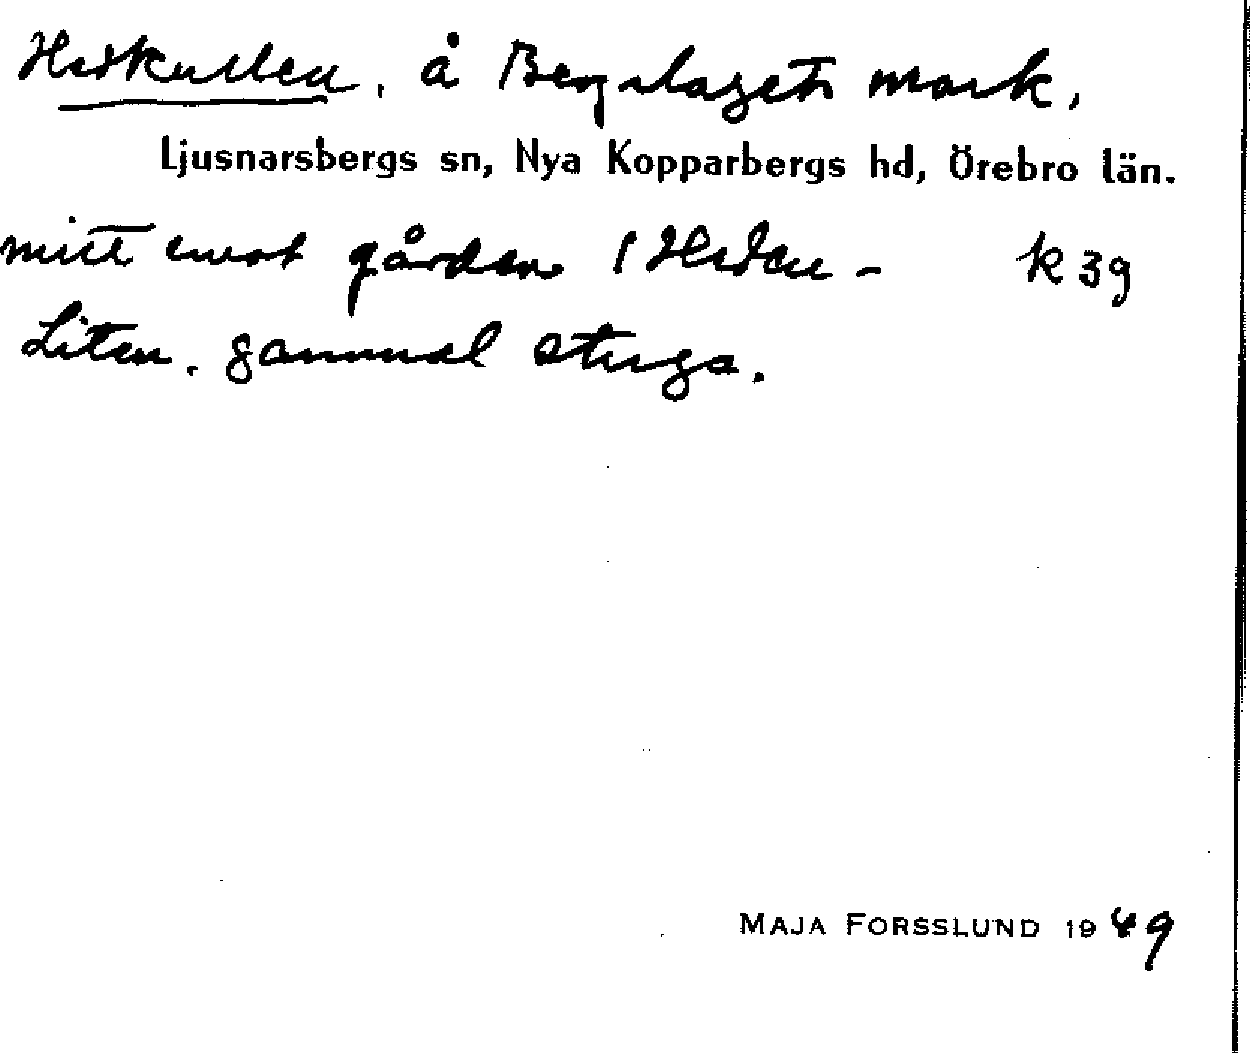 Hedkullen, å Bergslagets mark,
Ljusnarsbergs sn, Nya Kopparbergs hd, Örebro län.
mitt emot gården i Heden - k 39
Liten, gammal stuga.
MAJA FORSSLUND 1949